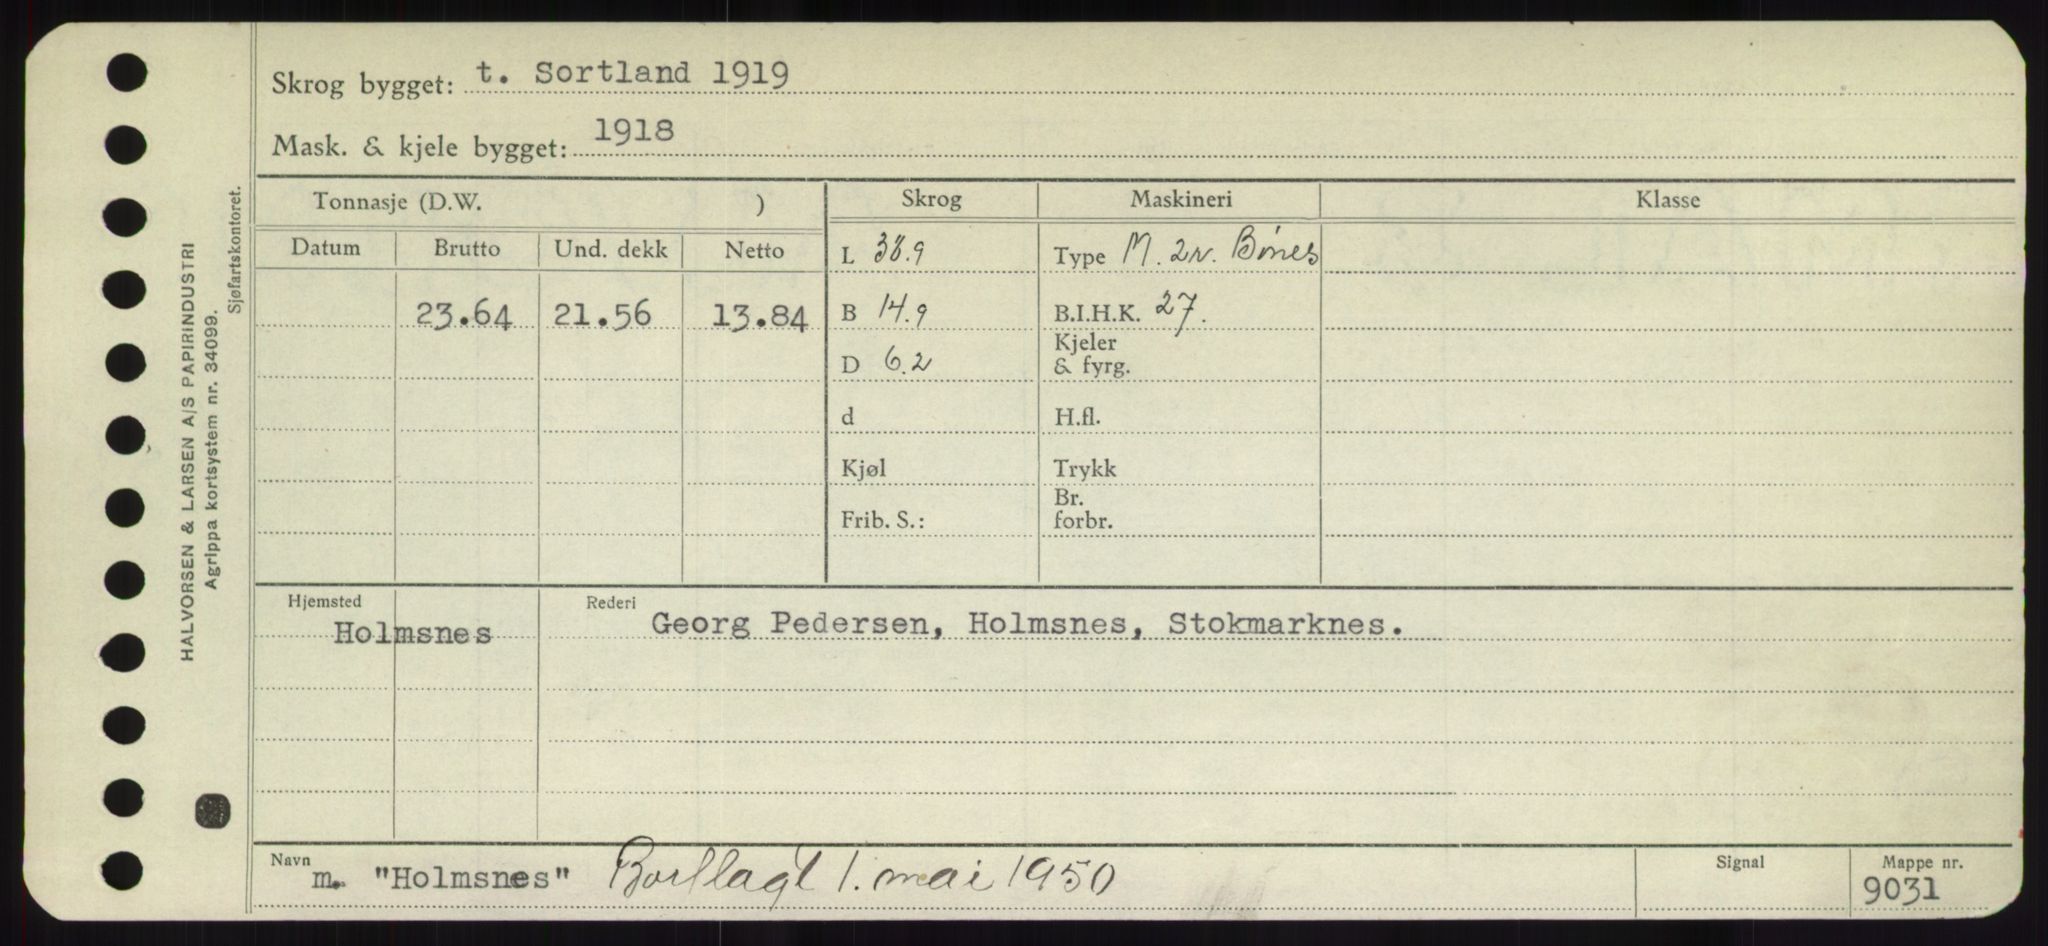 Skrog bygget: t. Sortland 1919
Mask. & kjele bygget: 1918
Tonnasje (D.W. )
Skrog
Maskineri
Klasse
Datum
Brutto
Und. dekk
Netto
L 38.9
Type M. 2v. Bones
23.64
21.56
13.84
B 14.9
B.I.H.K. 27.
D 6.2
Kjeler
& fyrg.
d
H.fl.
Kjøl
Trykk
Frib. S.:
Br.
forbr.
Hjemsted
Holmsnes
Rederi
Georg Pedersen, Holmsnes, Stokmarknes.
Navn
m. "Holmsnes" Borflagt 1. mai 1950
Signal
Mappe nr.
9031
HALVORSEN & LARSEN A/S PAPIRINDUSTRI
Agrippa kortsystem nr. 34099.
Sjøfartskontoret.